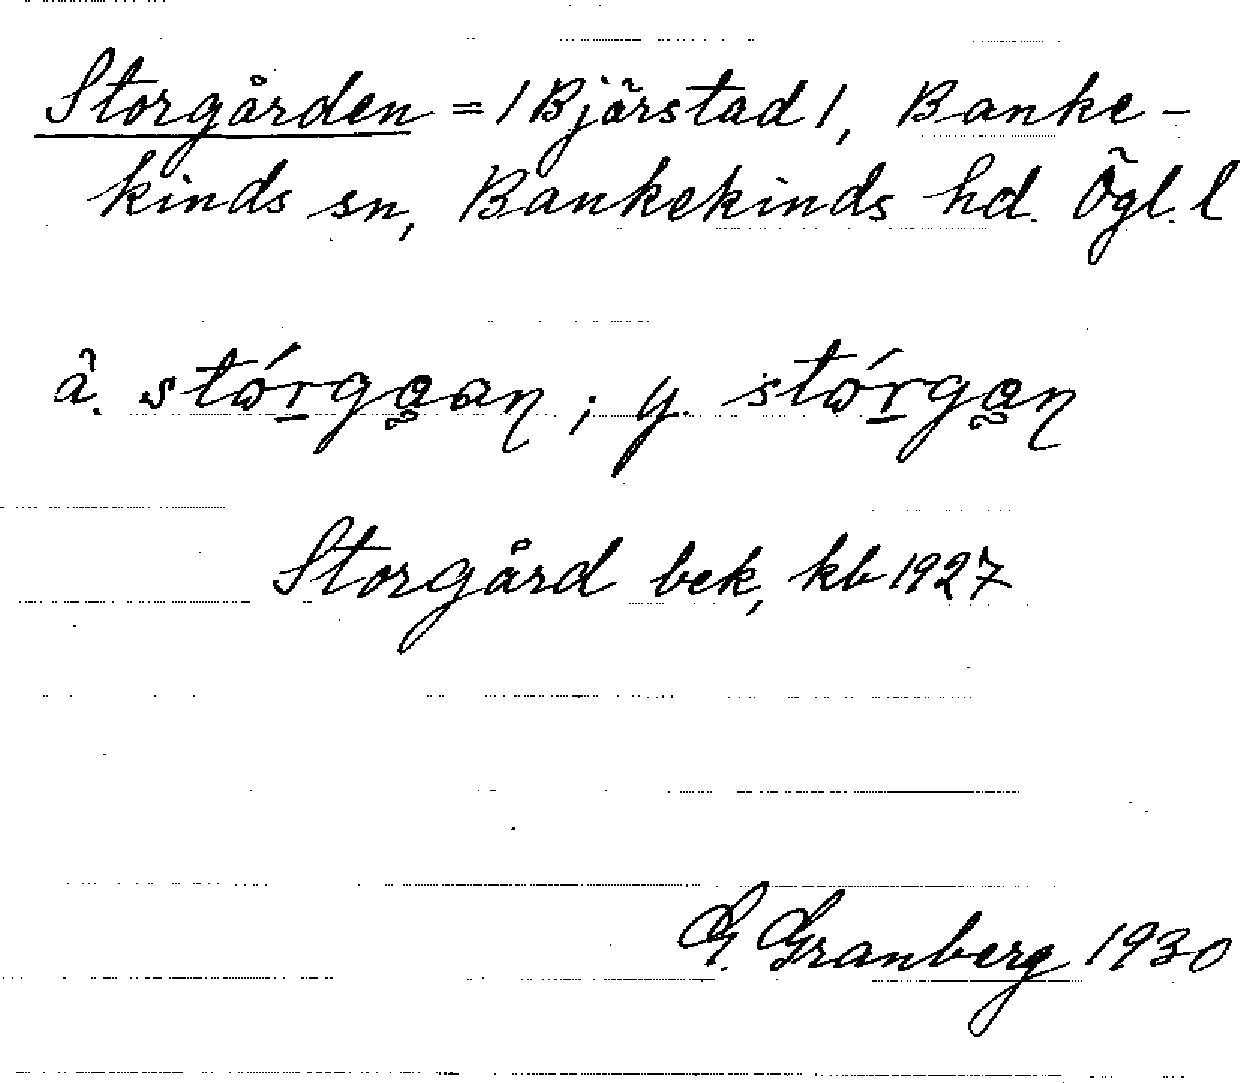 Storgården = / Bjärstad /, Banke-
kinds sn, Bankekinds hd. Ögl. l
ä. stórgɑan ; y. stórgɑn
Storgård bek, kb 1927
G. Granberg 1930